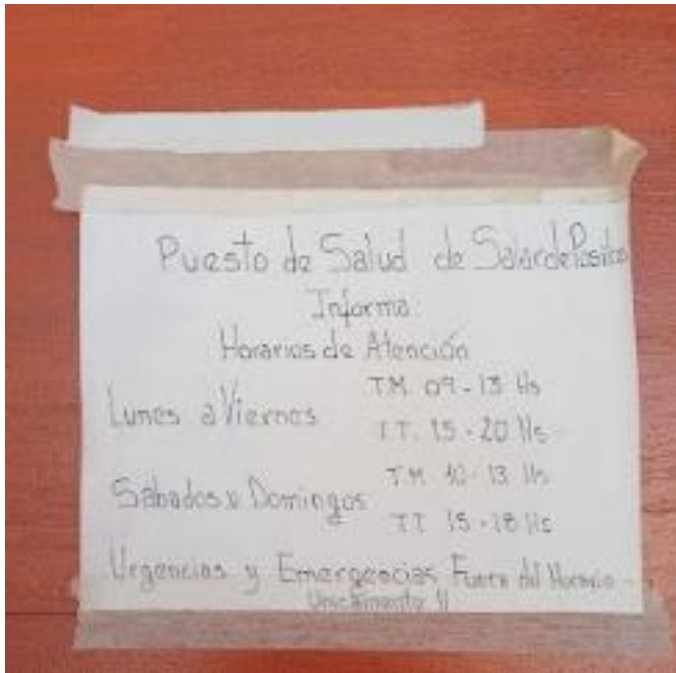 Puesto de Salud de Salar de Pocitos
Informa:
Horarios de Atención
Lunes a Viernes T.M. 09 - 13 Hs
T.T. 15 - 20 Hs
Sabados y Domingos T.M 10 - 13 Hs
TT 15 - 18 Hs
Urgencias y Emergencias Fuera del Horario
Unicamente !!